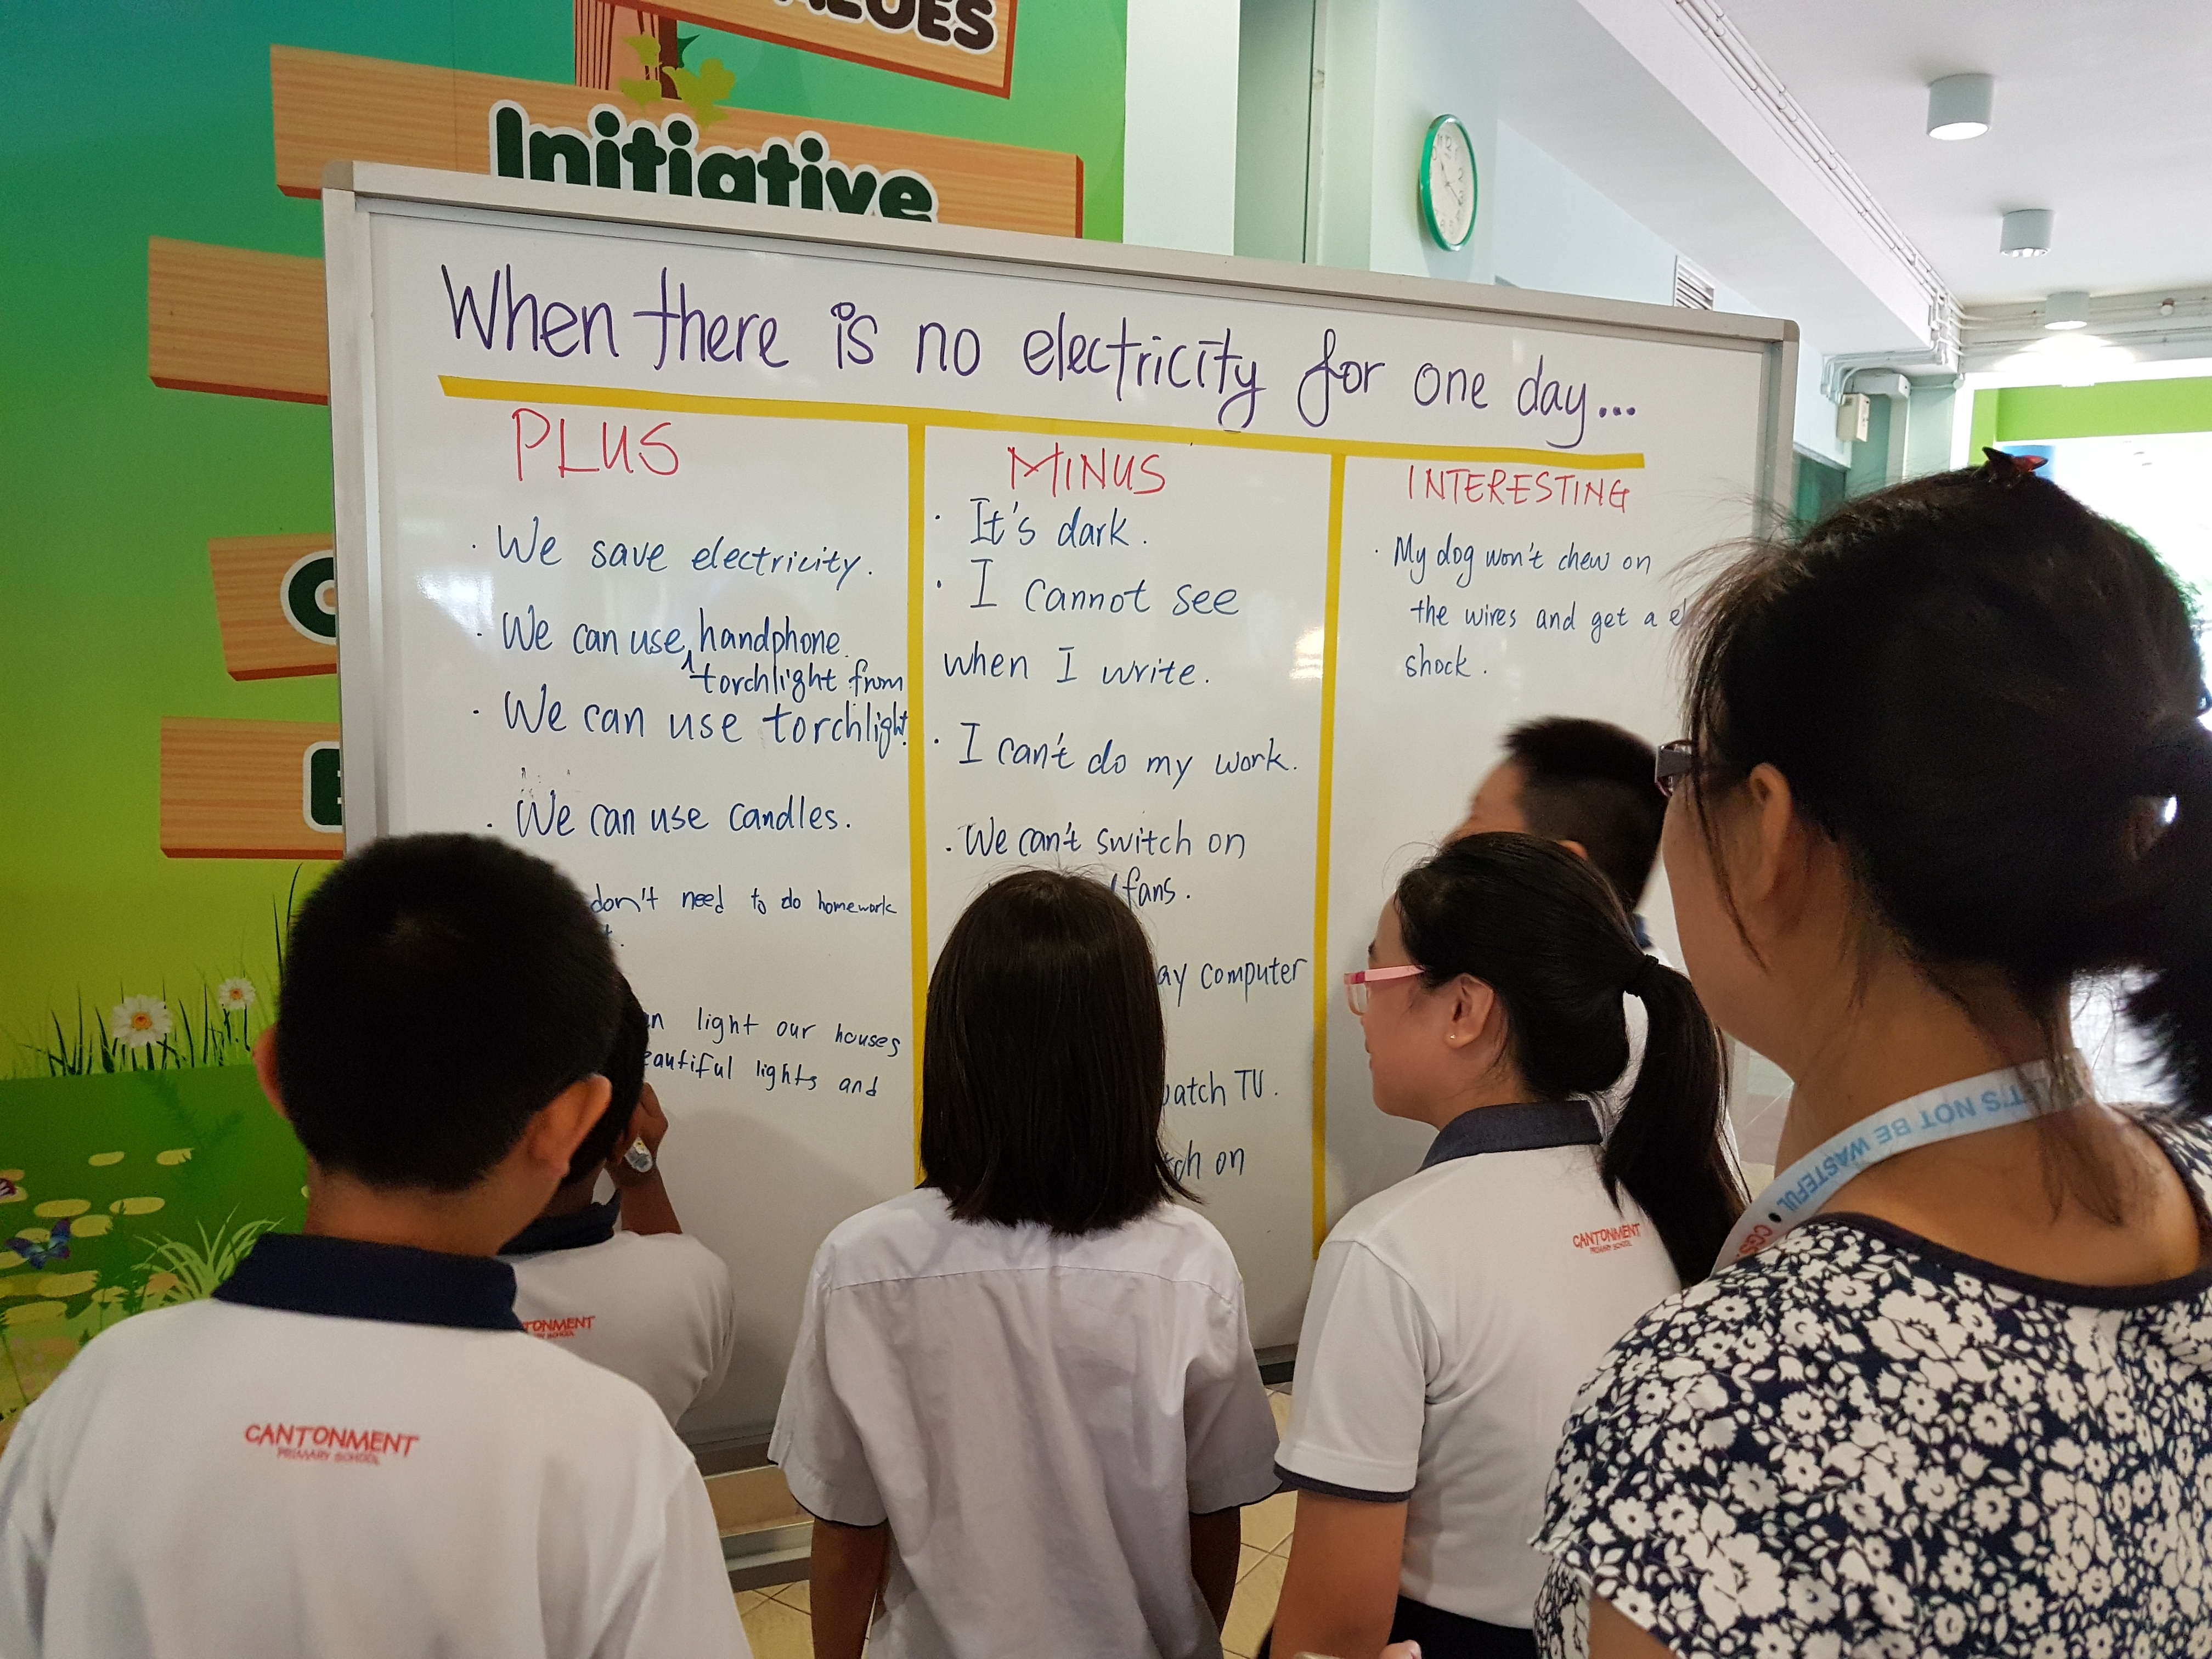 Initiative
When there is no electricity for one day...
PLUS
· We save electricity.
· We can use handphone.
^ torchlight from
· We can use torchlight.
· We can use candles.
don't need to do homework
light our houses
lights and
MINUS
· It's dark.
· I cannot see
when I write.
· I can't do my work.
· We can't switch on
fans.
computer
TV.
on
INTERESTING
· My dog won't chew on
the wires and get a
shock.
CANTONMENT
PRIMARY SCHOOL
CANTONMENT
PRIMARY SCHOOL
LET'S NOT BE WASTEFUL •